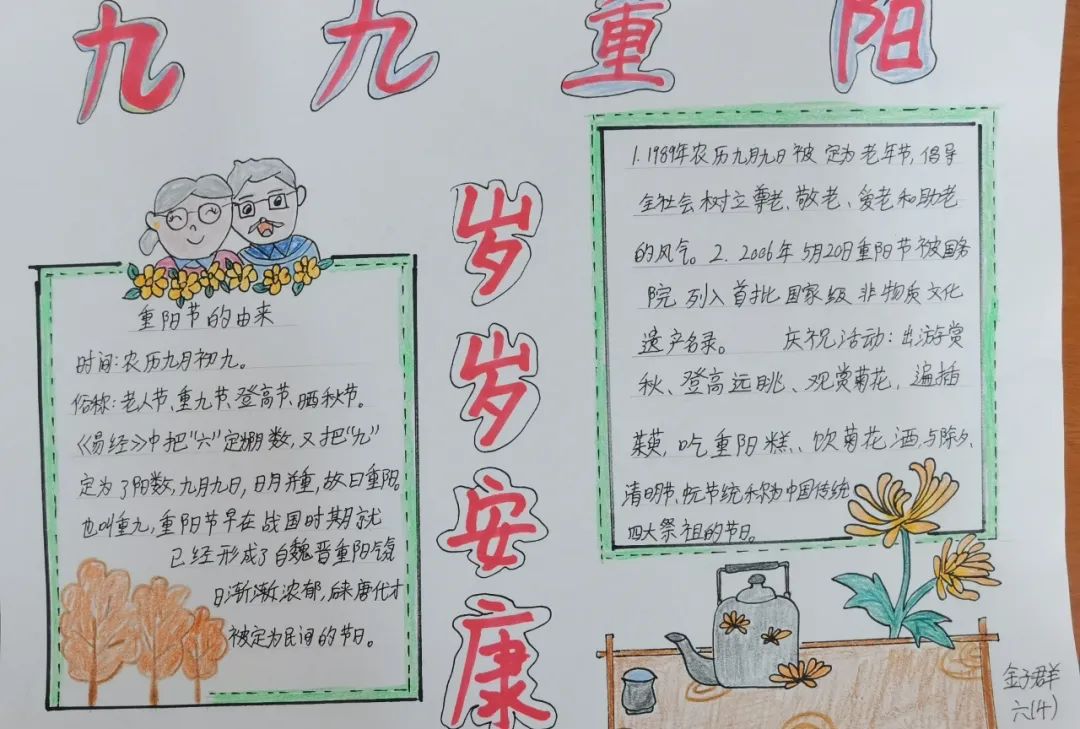 九九重阳
岁岁安康
重阳节的由来
时间:农历九月初九。
俗称:老人节、重九节、登高节、晒秋节。
《易经》中把“六”定阴数,又把“九”
定为了阳数,九月九日,日月并重,故曰重阳。
也叫重九,重阳节早在战国时期就
已经形成了自魏晋重阳气氛
日渐渐浓郁,后来唐代才
被定为民间的节日。
1.1989年农历九月九日被定为老年节,倡导
全社会树立尊老、敬老、爱老和助老
的风气。2.2006年5月20日重阳节被国务
院列入首批国家级非物质文化
遗产名录。 庆祝活动:出游赏
秋、登高远眺、观赏菊花,遍插
茱萸,吃重阳糕、饮菊花酒,与除夕、
清明节、节统称为中国传统
四大祭祖的节日。
金子群
六(4)